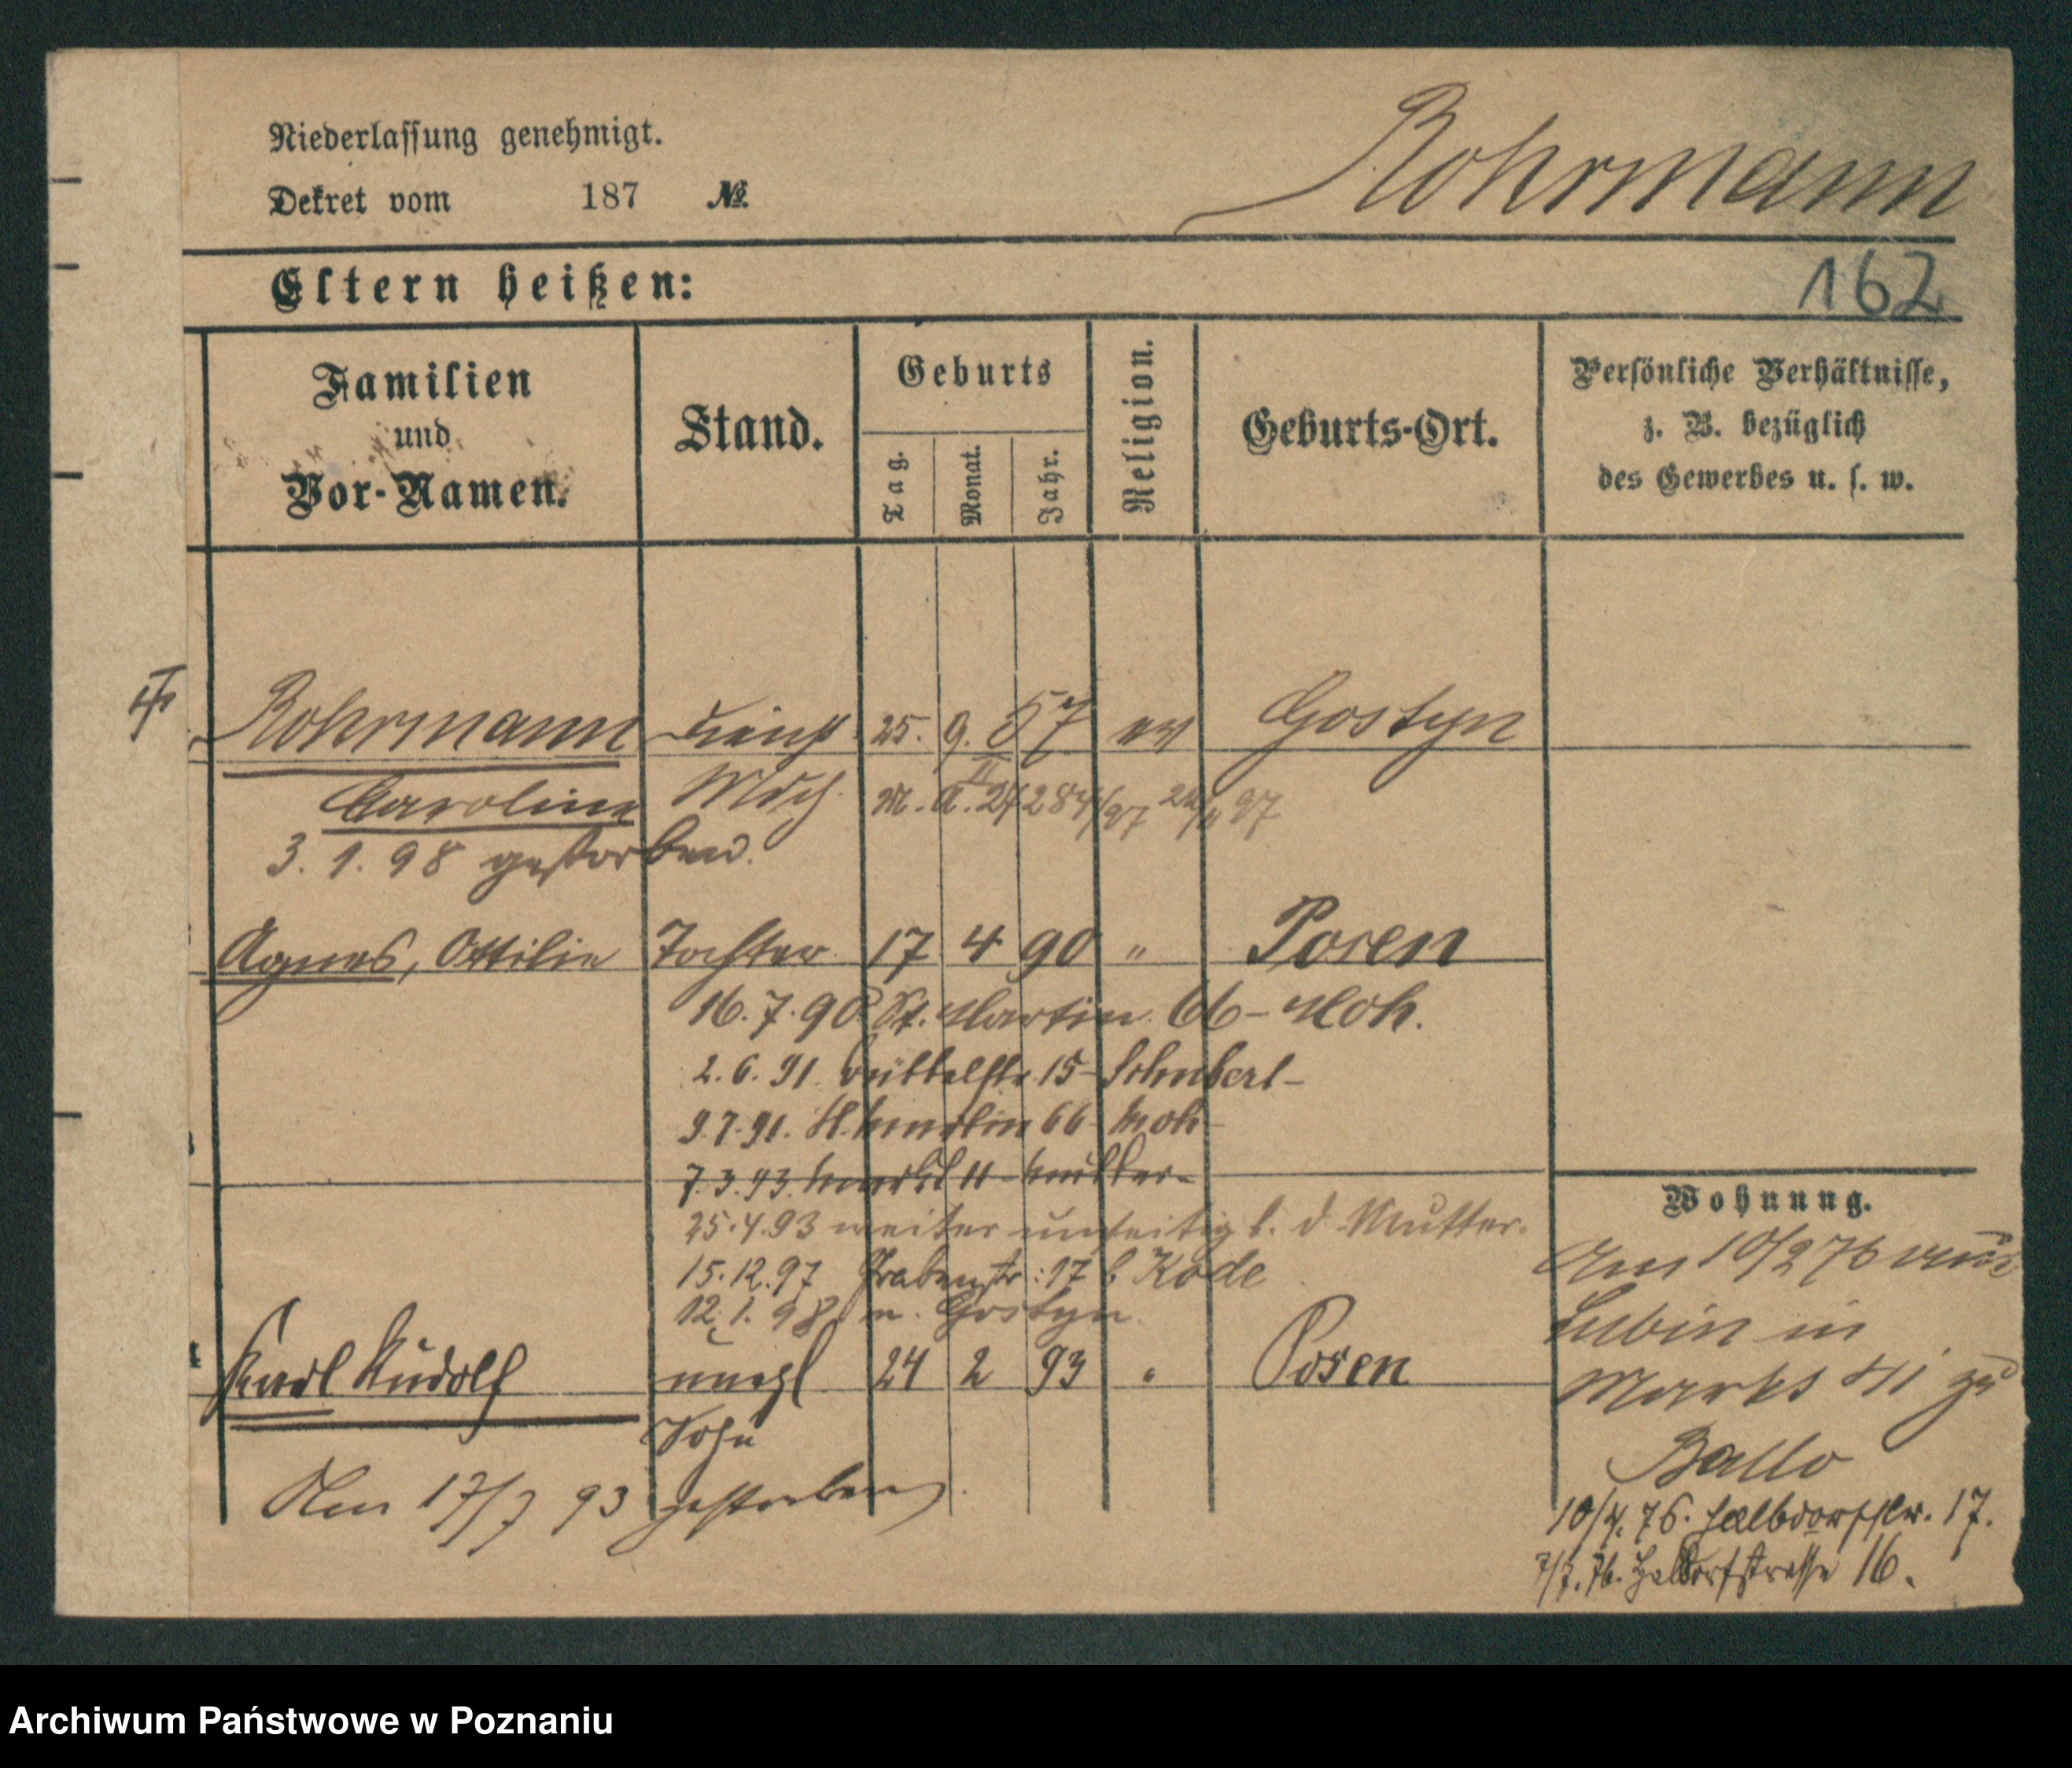 Niederlassung genehmigt.
Dekret vom 187 №
Rohrmann
Eltern heißen:
162
Familien
und
Vor-Namen.
Stand.
Geburts
Tag.
Monat.
Jahr.
Religion.
Geburts-Ort.
Persönliche Verhältnisse,
z. B. bezüglich
des Gewerbes u. s. w.
Rohrmann 25. 9. 57 ev Gostyn
Caroline
3. 1. 98 gestorben.
Agnes, Ottilie Tochter 17 4 90 " Posen
16. 7. 90. St. Martin 66 -
2. 6. 91. 15 -
9. 7. 91. St. Martin 66 -
7. 3. 93. Markt 11 -
25. 4. 93 weiter b. d. Mutter.
15. 12. 97 Grabenstr: 17 b Kode
12. 1. 98 n. Gostyn.
Karl Rudolf unehl 24 2 93 " Posen
Sohn
Am 17/7 93 gestorben
Wohnung.
Am 10/2 76 aus
Lubin in
Markt zu
Ballo
10/4. 76. Halbdorfstr. 17.
7/7. 76. Halbdorfstrasse 16.
Archiwum Państwowe w Poznaniu